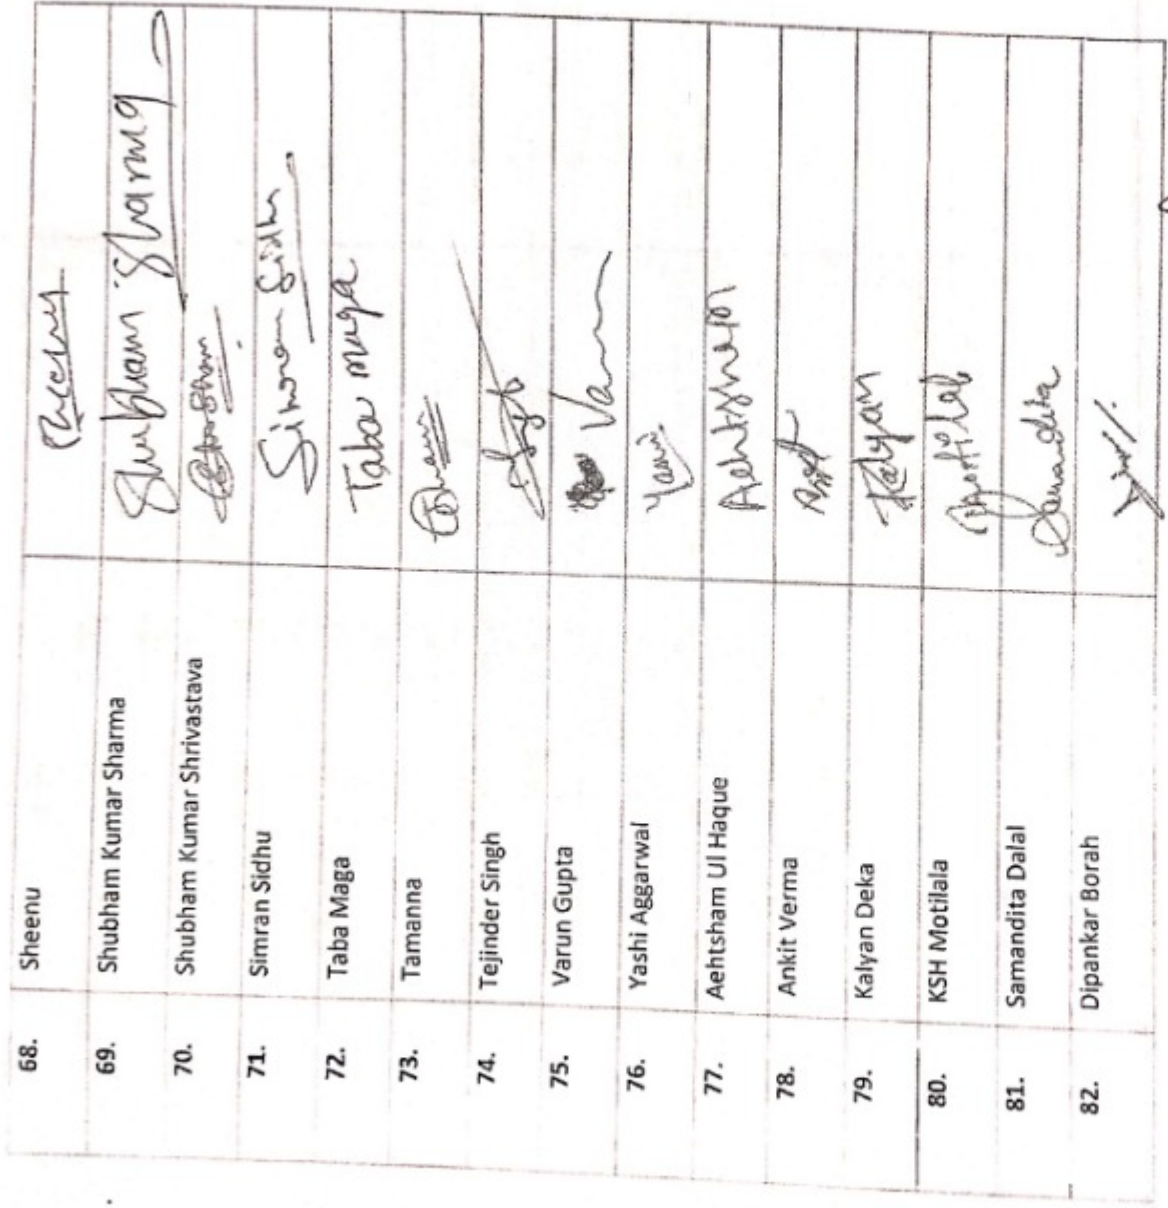 68. Sheenu Sheenu
69. Shubham Kumar Sharma Shubham Sharma
70. Shubham Kumar Shrivastava
71. Simran Sidhu Simran Sidhu
72. Taba Maga Taba maga
73. Tamanna
74. Tejinder Singh
75. Varun Gupta
76. Yashi Aggarwal Yashi
77. Aehtsham Ul Haque Aehtsham
78. Ankit Verma
79. Kalyan Deka Kalyan
80. KSH Motilala
81. Samandita Dalal Samandita
82. Dipankar Borah